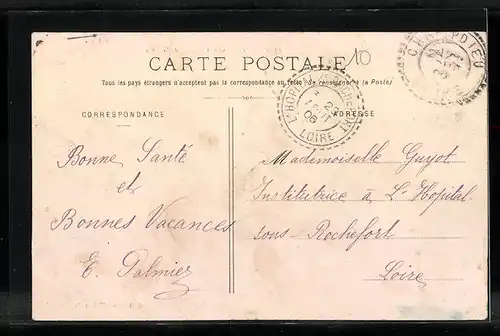 CARTE POSTALE
10
Tous les pays étrangers n'acceptent pas la correspondance au recto (Se renseigner à la Poste)
CORRESPONDANCE
ADRESSE
L'HOPITAL
22
06
LOIRE
Bonne Santé
et
Bonnes Vacances
E. Palmier
Mademoiselle Guyot
Institutrice à L'Hopital
sous-Rochefort
Loire